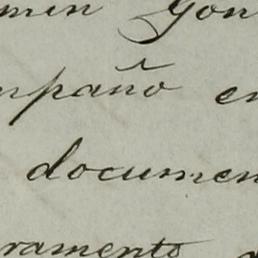 men Gon
mpaño en
documen
ramento